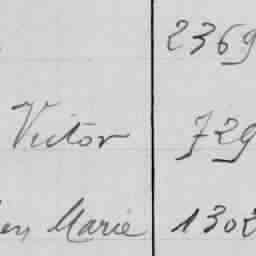 2369
Victor 729
Marie 1302